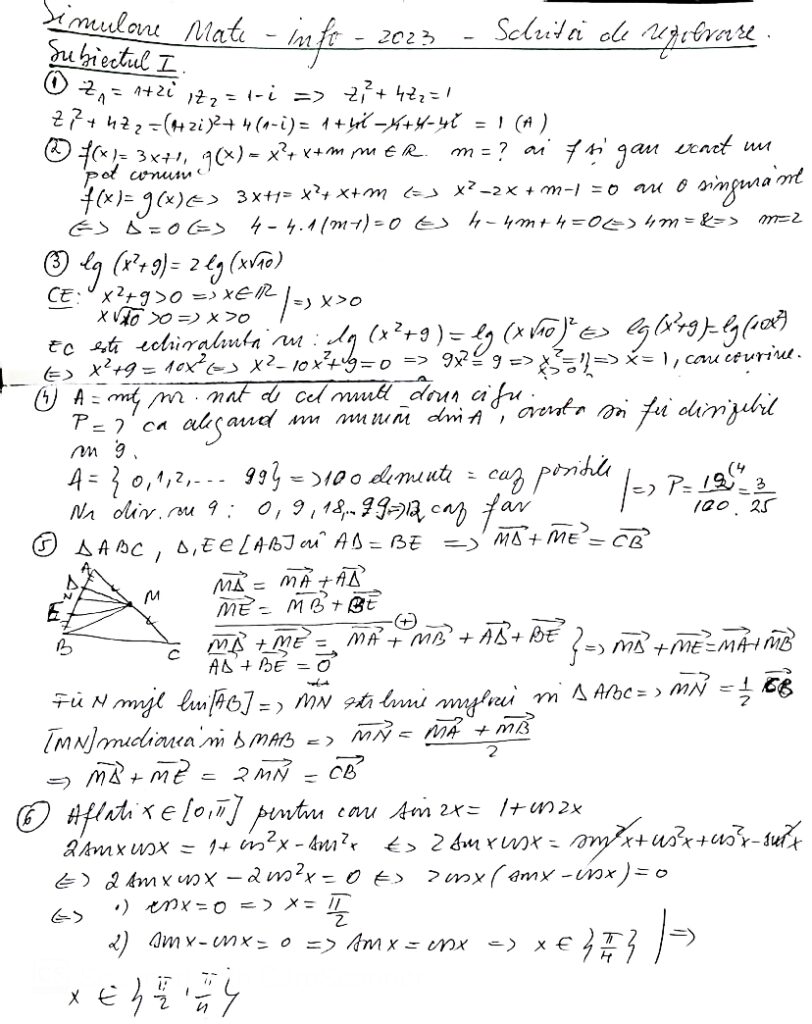 Simulare Mate - info - 2023 - Schiță de rezolvare.
Subiectul I.
① z₁ = 1+2i, z₂ = 1-i => z₁² + 4z₂ = 1
z₁² + 4z₂ = (1+2i)² + 4(1-i) = 1+4i-4+4-4i = 1 (A)
② f(x) = 3x+1, g(x) = x²+x+m, m∈R. m=? aî f și g au exact un
pct comun.
f(x) = g(x) <=> 3x+1 = x²+x+m <=> x²-2x+m-1=0 are o singură
<=> Δ=0 <=> 4-4·1(m-1)=0 <=> 4-4m+4=0 <=> 4m=8 => m=2
③ lg (x²+9) = 2 lg (x√10)
CE: x²+9>0 => x∈R | => x>0
x√10 >0 => x>0
Ec este echivalentă cu: lg (x²+9) = lg (x√10)² <=> lg(x²+9)=lg(10x²)
<=> x²+9 = 10x² <=> x²-10x²+9=0 => 9x²=9 => x²=1, x>0 => x=1, care convine.
④ A = mț nr. nat de cel mult două cifre.
P = ? ca alegând un număr din A, acesta să fie divizibil
cu 9.
A = { 0, 1, 2, ... 99} => 100 elemente = caz posibile | => P = 12(4/100 = 3/25
Nr div. cu 9 : 0, 9, 18, .. 99 => 12 caz fav
⑤ ΔABC, D, E∈[AB] aî AD = BE => MD + ME = CB
A
D
N
M
E
B
C
MD = MA + AD
ME = MB + BE
(+)
MD + ME = MA + MB + AD + BE } => MD + ME = MA+MB
AD + BE = 0
Fie N mijl lui [AB] => MN este linie mijlocie în ΔABC => MN = 1/2 CB
[MN] mediană în ΔMAB => MN = MA + MB / 2
=> MD + ME = 2MN = CB
⑥ Aflați x∈[0,π] pentru care sin 2x = 1+cos 2x
2 sinx cosx = 1+cos²x - sin²x <=> 2 sinx cosx = sin²x + cos²x + cos²x - sin²x
<=> 2 sinx cosx - 2cos²x = 0 <=> 2cosx (sinx - cosx) = 0
<=> 1) cosx = 0 => x = π/2
2) sinx - cosx = 0 => sinx = cosx => x ∈ {π/4} | =>
x ∈ {π/2, π/4}